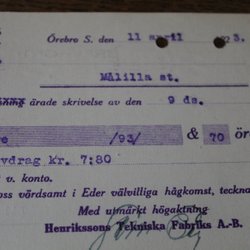 Örebro S. den 11 april 23.
Målilla st.
ärade skrivelse av den 9 ds.
/93/ & 70 ör
vdrag kr. 7:80
t v. konto.
oss vördsamt i Eder välvilliga hågkomst, teckna
Med utmärkt högaktning
Henrikssons Tekniska Fabriks A.-B.